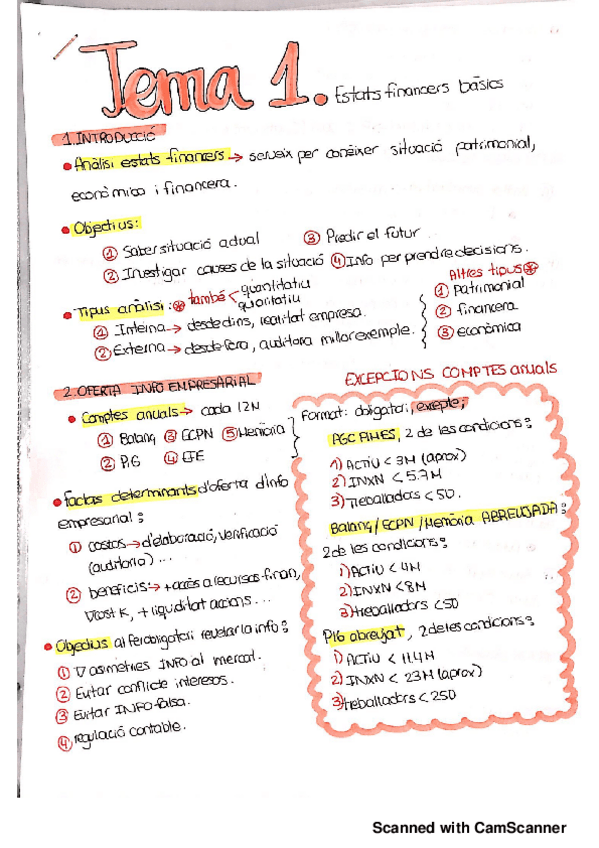 Tema 1. Estats financers bàsics
1. INTRODUCCIÓ
• Anàlisi estats financers → serveix per conèixer situació patrimonial,
econòmica i financera.
• Objectius:
① Saber situació actual ③ Predir el futur
② Investigar causes de la situació ④ Info per prendre decisions.
• Tipus anàlisi: també quantitatiu
qualitatiu
① Interna → desde dins, realitat empresa.
② Externa → desde fora, auditoria millor exemple.
Altres tipus
① Patrimonial
② financera
③ econòmica
2. OFERTA INFO EMPRESARIAL
• Comptes anuals → cada 12M
① Balanç ③ ECPN ⑤ Memòria
② PiG ④ EFE
• Factors determinants d'oferta d'info
empresarial:
① costos → d'elaboració, verificació
(auditoria) ...
② beneficis: → + accés a recursos finan,
cost K, + liquiditat accions...
• Objectius al fer obligatori revelar la info:
① asimetries INFO al mercat.
② Evitar conflicte interesos.
③ Evitar INFO falsa.
④ regulació contable.
EXCEPCIONS COMPTES anuals
Format: obligatori, exepte;
PGC PIMES, 2 de les condicions:
1) ACTIU < 3M (aprox)
2) INXN < 5.7M
3) Treballadors < 50.
Balanç/ECPN/Memòria ABREUJADA:
2 de les condicions:
1) ACTIU < 4M
2) INXN < 8M
3) treballadors < 50
PiG abreujat, 2 de les condicions:
1) ACTIU < 11.4M
2) INXN < 23M (aprox)
3) treballadors < 250
Scanned with CamScanner